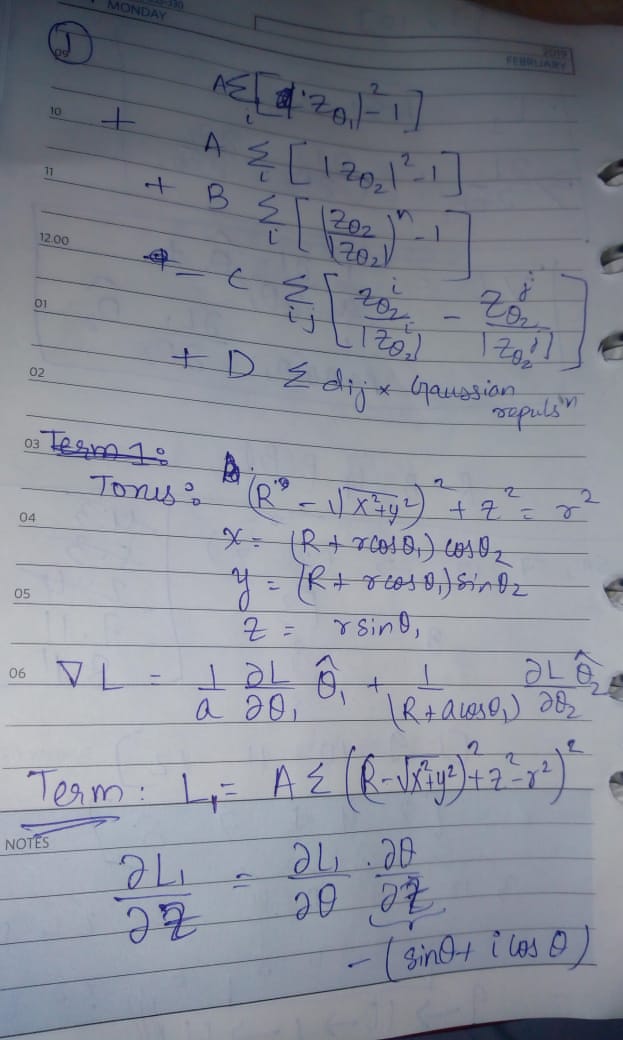 MONDAY
2019
FEBRUARY
①
09
A Σ_i [ |z_θ₁|² - 1 ]
10
+ A Σ_i [ |z_θ₂|² - 1 ]
11
+ B Σ_i [ (z_θ₂ / |z_θ₂|)^n - 1 ]
12.00
- C Σ_ij [ z_θ₂^i / |z_θ₂^i| - z_θ₂^j / |z_θ₂^j| ]
01
+ D Σ d_ij × Gaussian
repuls^n
02
03 Term 1:
Torus: (R - √(x²+y²))² + z² = r²
04
x = (R + r cos θ₁) cos θ₂
y = (R + r cos θ₁) sin θ₂
05
z = r sin θ₁
06
∇L = 1/a ∂L/∂θ₁ θ̂₁ + 1/(R + a cos θ₁) ∂L/∂θ₂ θ̂₂
Term: L₁ = A Σ ( (R - √(x²+y²))² + z² - r² )²
NOTES
∂L₁/∂z = ∂L₁/∂θ · ∂θ/∂z
- (sin θ + i cos θ)